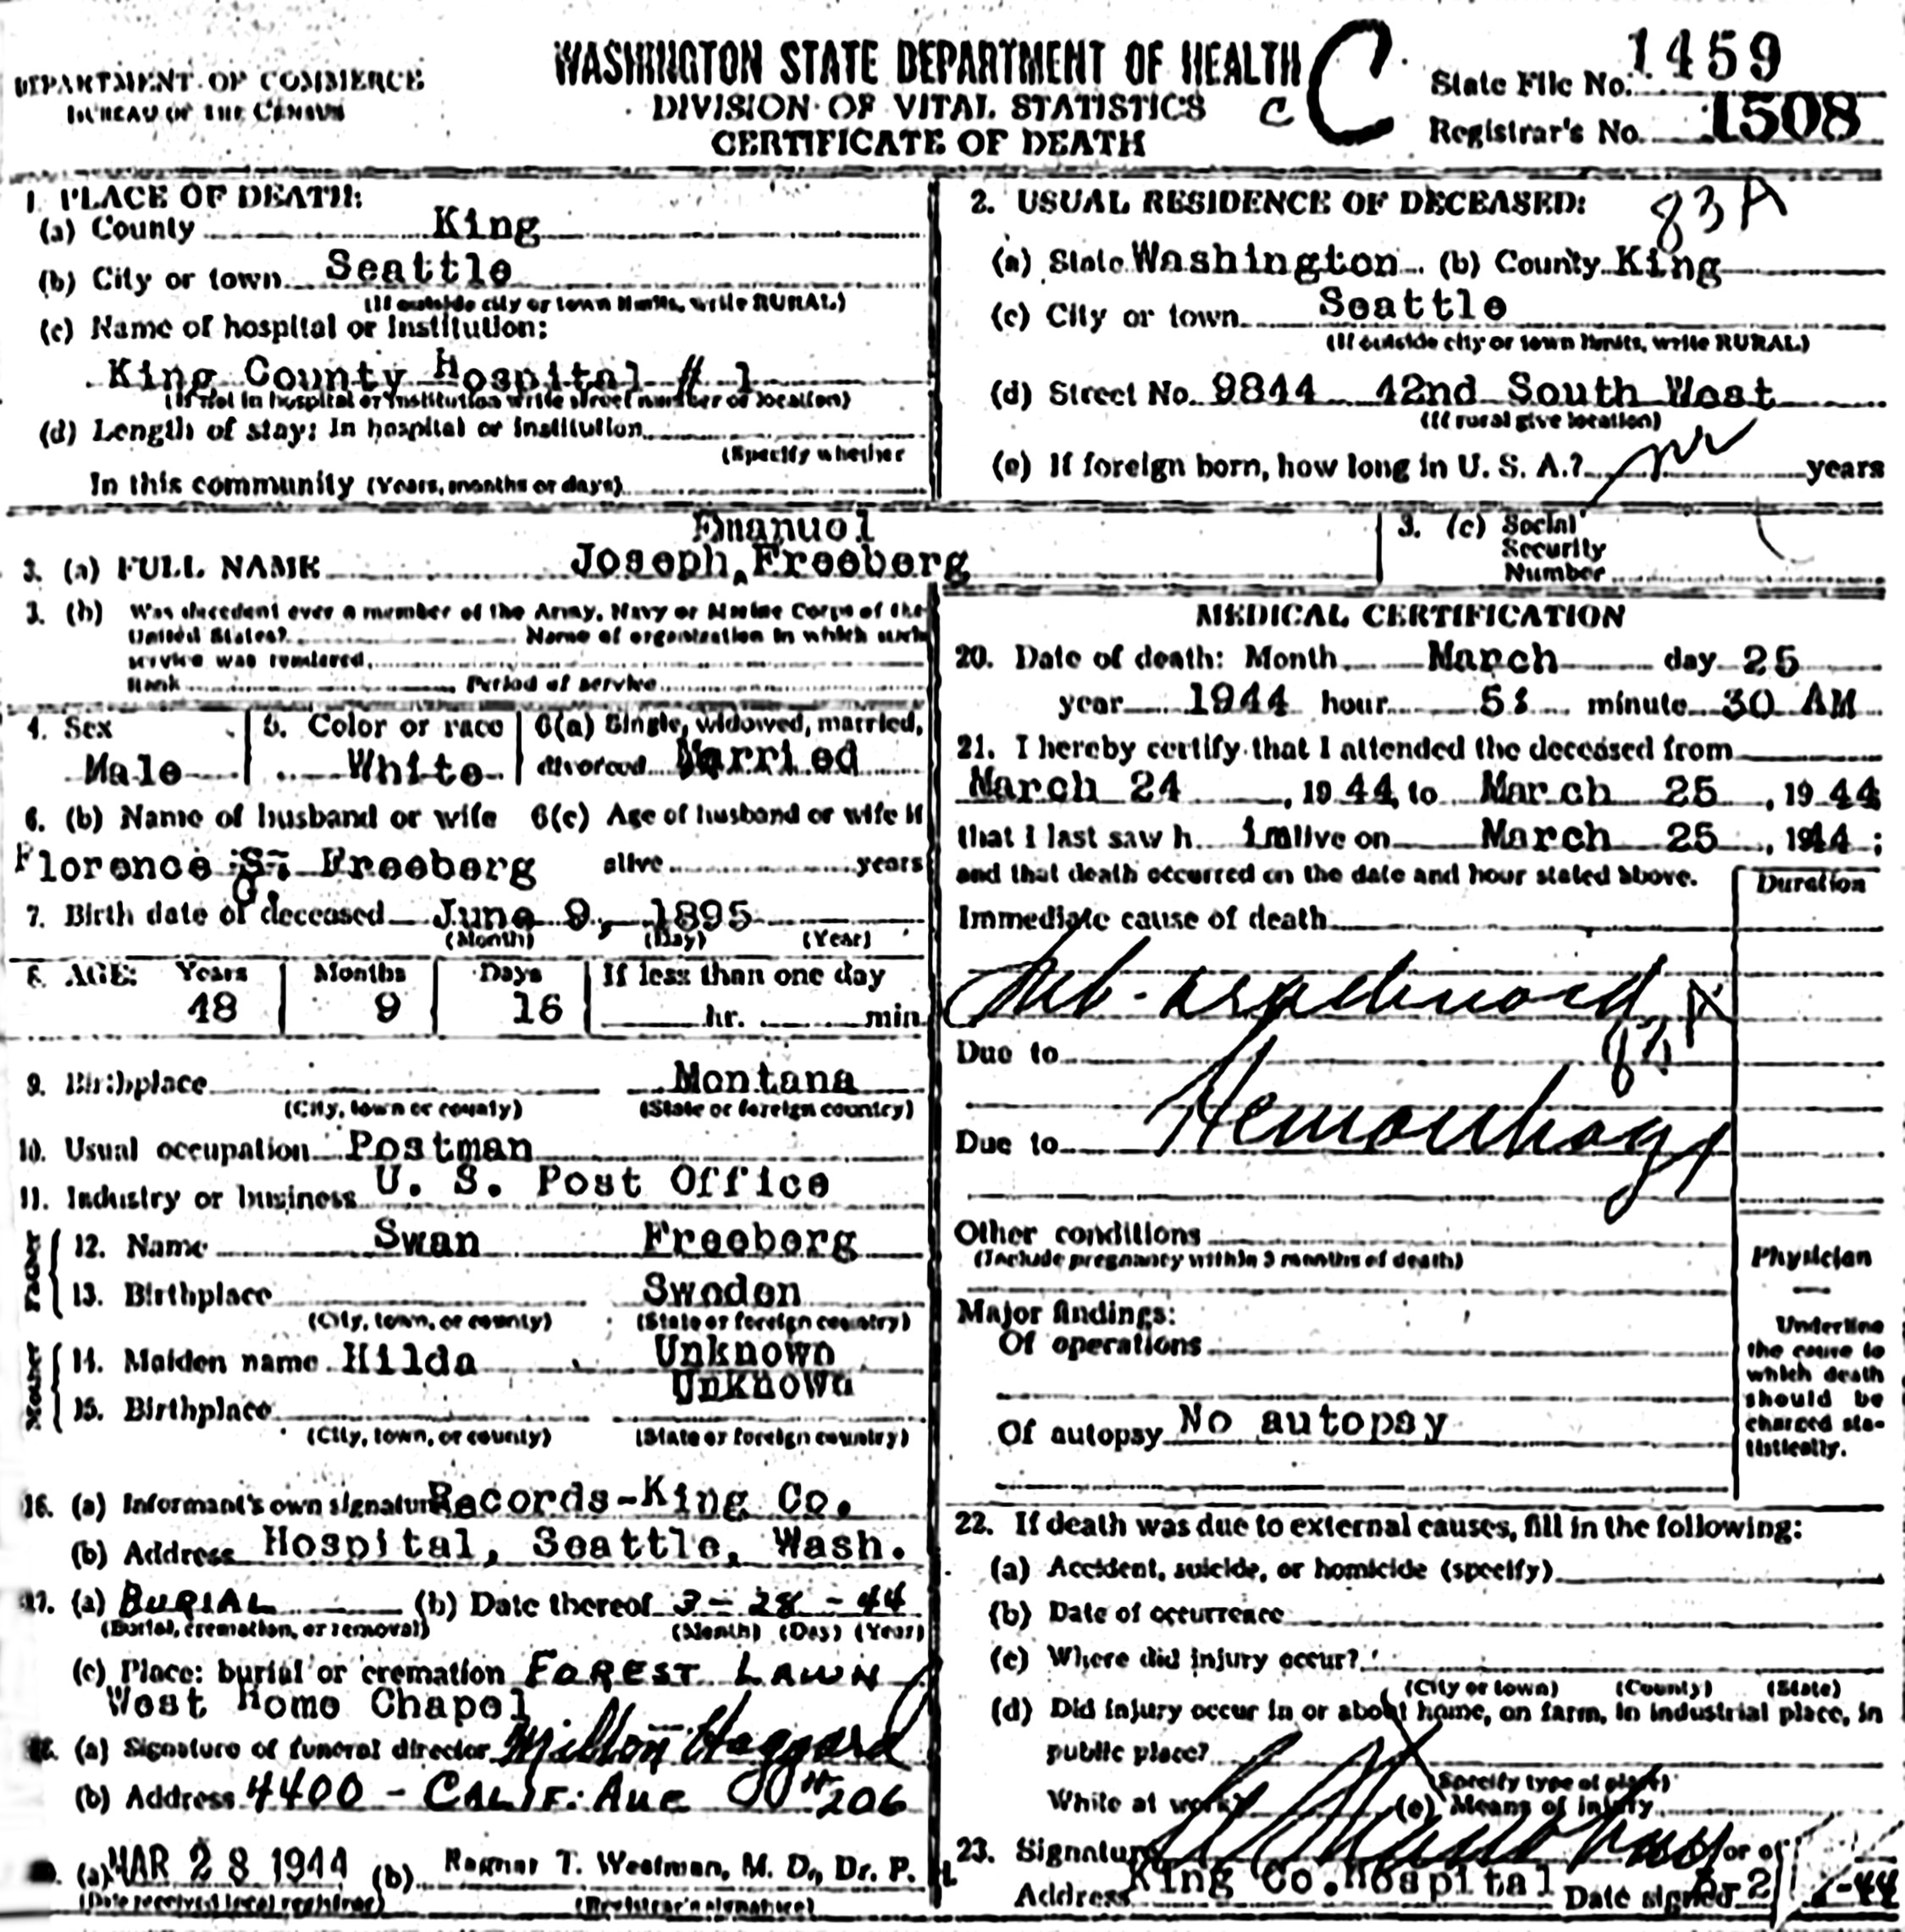 DEPARTMENT OF COMMERCE
BUREAU OF THE CENSUS
WASHINGTON STATE DEPARTMENT OF HEALTH
DIVISION OF VITAL STATISTICS
CERTIFICATE OF DEATH
C C
State File No. 1459
Registrar's No. 1508
1. PLACE OF DEATH:
(a) County King
(b) City or town Seattle
(If outside city or town limits, write RURAL)
(c) Name of hospital or institution:
King County Hospital # 1
(If not in hospital or institution write street number or location)
(d) Length of stay: In hospital or institution
(Specify whether
In this community (Years, months or days)
2. USUAL RESIDENCE OF DECEASED: 83A
(a) State Washington (b) County King
(c) City or town Seattle
(If outside city or town limits, write RURAL)
(d) Street No. 9844 42nd South West
(If rural give location)
(e) If foreign born, how long in U. S. A.? years
Emanuel
3. (a) FULL NAME Joseph Freeberg
3. (c) Social Security Number
3. (b) Was decedent ever a member of the Army, Navy or Marine Corps of the
United States? Name of organization in which such
service was rendered
Rank Period of service
4. Sex Male
5. Color or race White
6(a) Single, widowed, married,
divorced Married
6. (b) Name of husband or wife 6(c) Age of husband or wife if
Florence S. Freeberg alive years
7. Birth date of deceased June 9, 1895
(Month) (Day) (Year)
8. AGE: Years Months Days If less than one day
48 9 16 hr. min.
9. Birthplace Montana
(City, town or county) (State or foreign country)
10. Usual occupation Postman
11. Industry or business U. S. Post Office
Father
12. Name Swan Freeberg
13. Birthplace Sweden
(City, town, or county) (State or foreign country)
Mother
14. Maiden name Hilda Unknown
15. Birthplace Unknown
(City, town, or county) (State or foreign country)
16. (a) Informant's own signature Records-King Co.
(b) Address Hospital, Seattle, Wash.
17. (a) BURIAL (b) Date thereof 3-28-44
(Burial, cremation, or removal) (Month) (Day) (Year)
(c) Place: burial or cremation FOREST LAWN
West Home Chapel
18. (a) Signature of funeral director Milton Haggard
(b) Address 4400 - CALIF. AVE 206
(a) MAR 28 1944 (b) Ragnar T. Westman, M. D., Dr. P. H
(Date received local registrar) (Registrar's signature)
MEDICAL CERTIFICATION
20. Date of death: Month March day 25
year 1944 hour 5: minute 30 AM
21. I hereby certify that I attended the deceased from
March 24, 1944, to March 25, 1944
that I last saw h im alive on March 25, 1944;
and that death occurred on the date and hour stated above.
Duration
Immediate cause of death
Sub-arachnoid
Due to
Hemorrhage
Due to
Other conditions
(Include pregnancy within 3 months of death)
Physician
Major findings:
Of operations
Of autopsy No autopsy
Underline
the cause to
which death
should be
charged sta-
tistically.
22. If death was due to external causes, fill in the following:
(a) Accident, suicide, or homicide (specify)
(b) Date of occurrence
(c) Where did injury occur?
(City or town) (County) (State)
(d) Did injury occur in or about home, on farm, in industrial place, in
public place?
(Specify type of place)
While at work? (e) Means of injury
23. Signature or of
Address King Co. Hospital Date signed